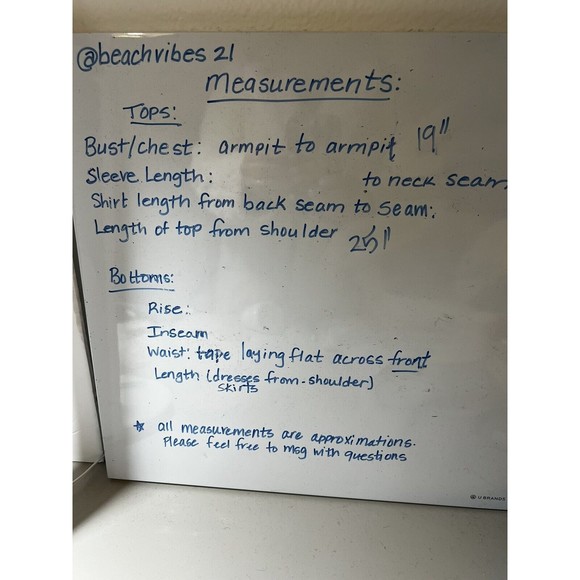 @beachvibes 21
Measurements:
TOPS:
Bust/chest: armpit to armpit 19"
Sleeve Length: to neck seam
Shirt length from back seam to seam:
Length of top from shoulder 25"
Bottoms:
Rise:
Inseam
Waist: tape laying flat across front
Length (dresses from-shoulder)
skirts
* all measurements are approximations.
Please feel free to msg with questions
U BRANDS